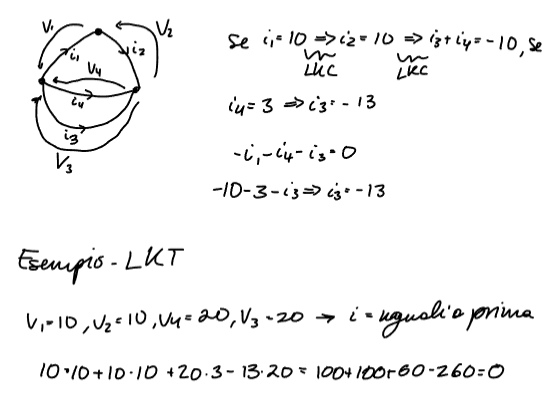 V₁ V₂
i₁ i₂
V₄
i₄
i₃
V₃
Se i₁=10 ⇒ i₂=10 ⇒ i₃+i₄=-10, se
LKC LKC
i₄=3 ⇒ i₃=-13
-i₁-i₄-i₃=0
-10-3-i₃ ⇒ i₃=-13
Esempio - LKT
V₁=10, V₂=10, V₄=20, V₃=20 → i = uguali a prima
10·10+10·10+20·3-13·20=100+100+60-260=0